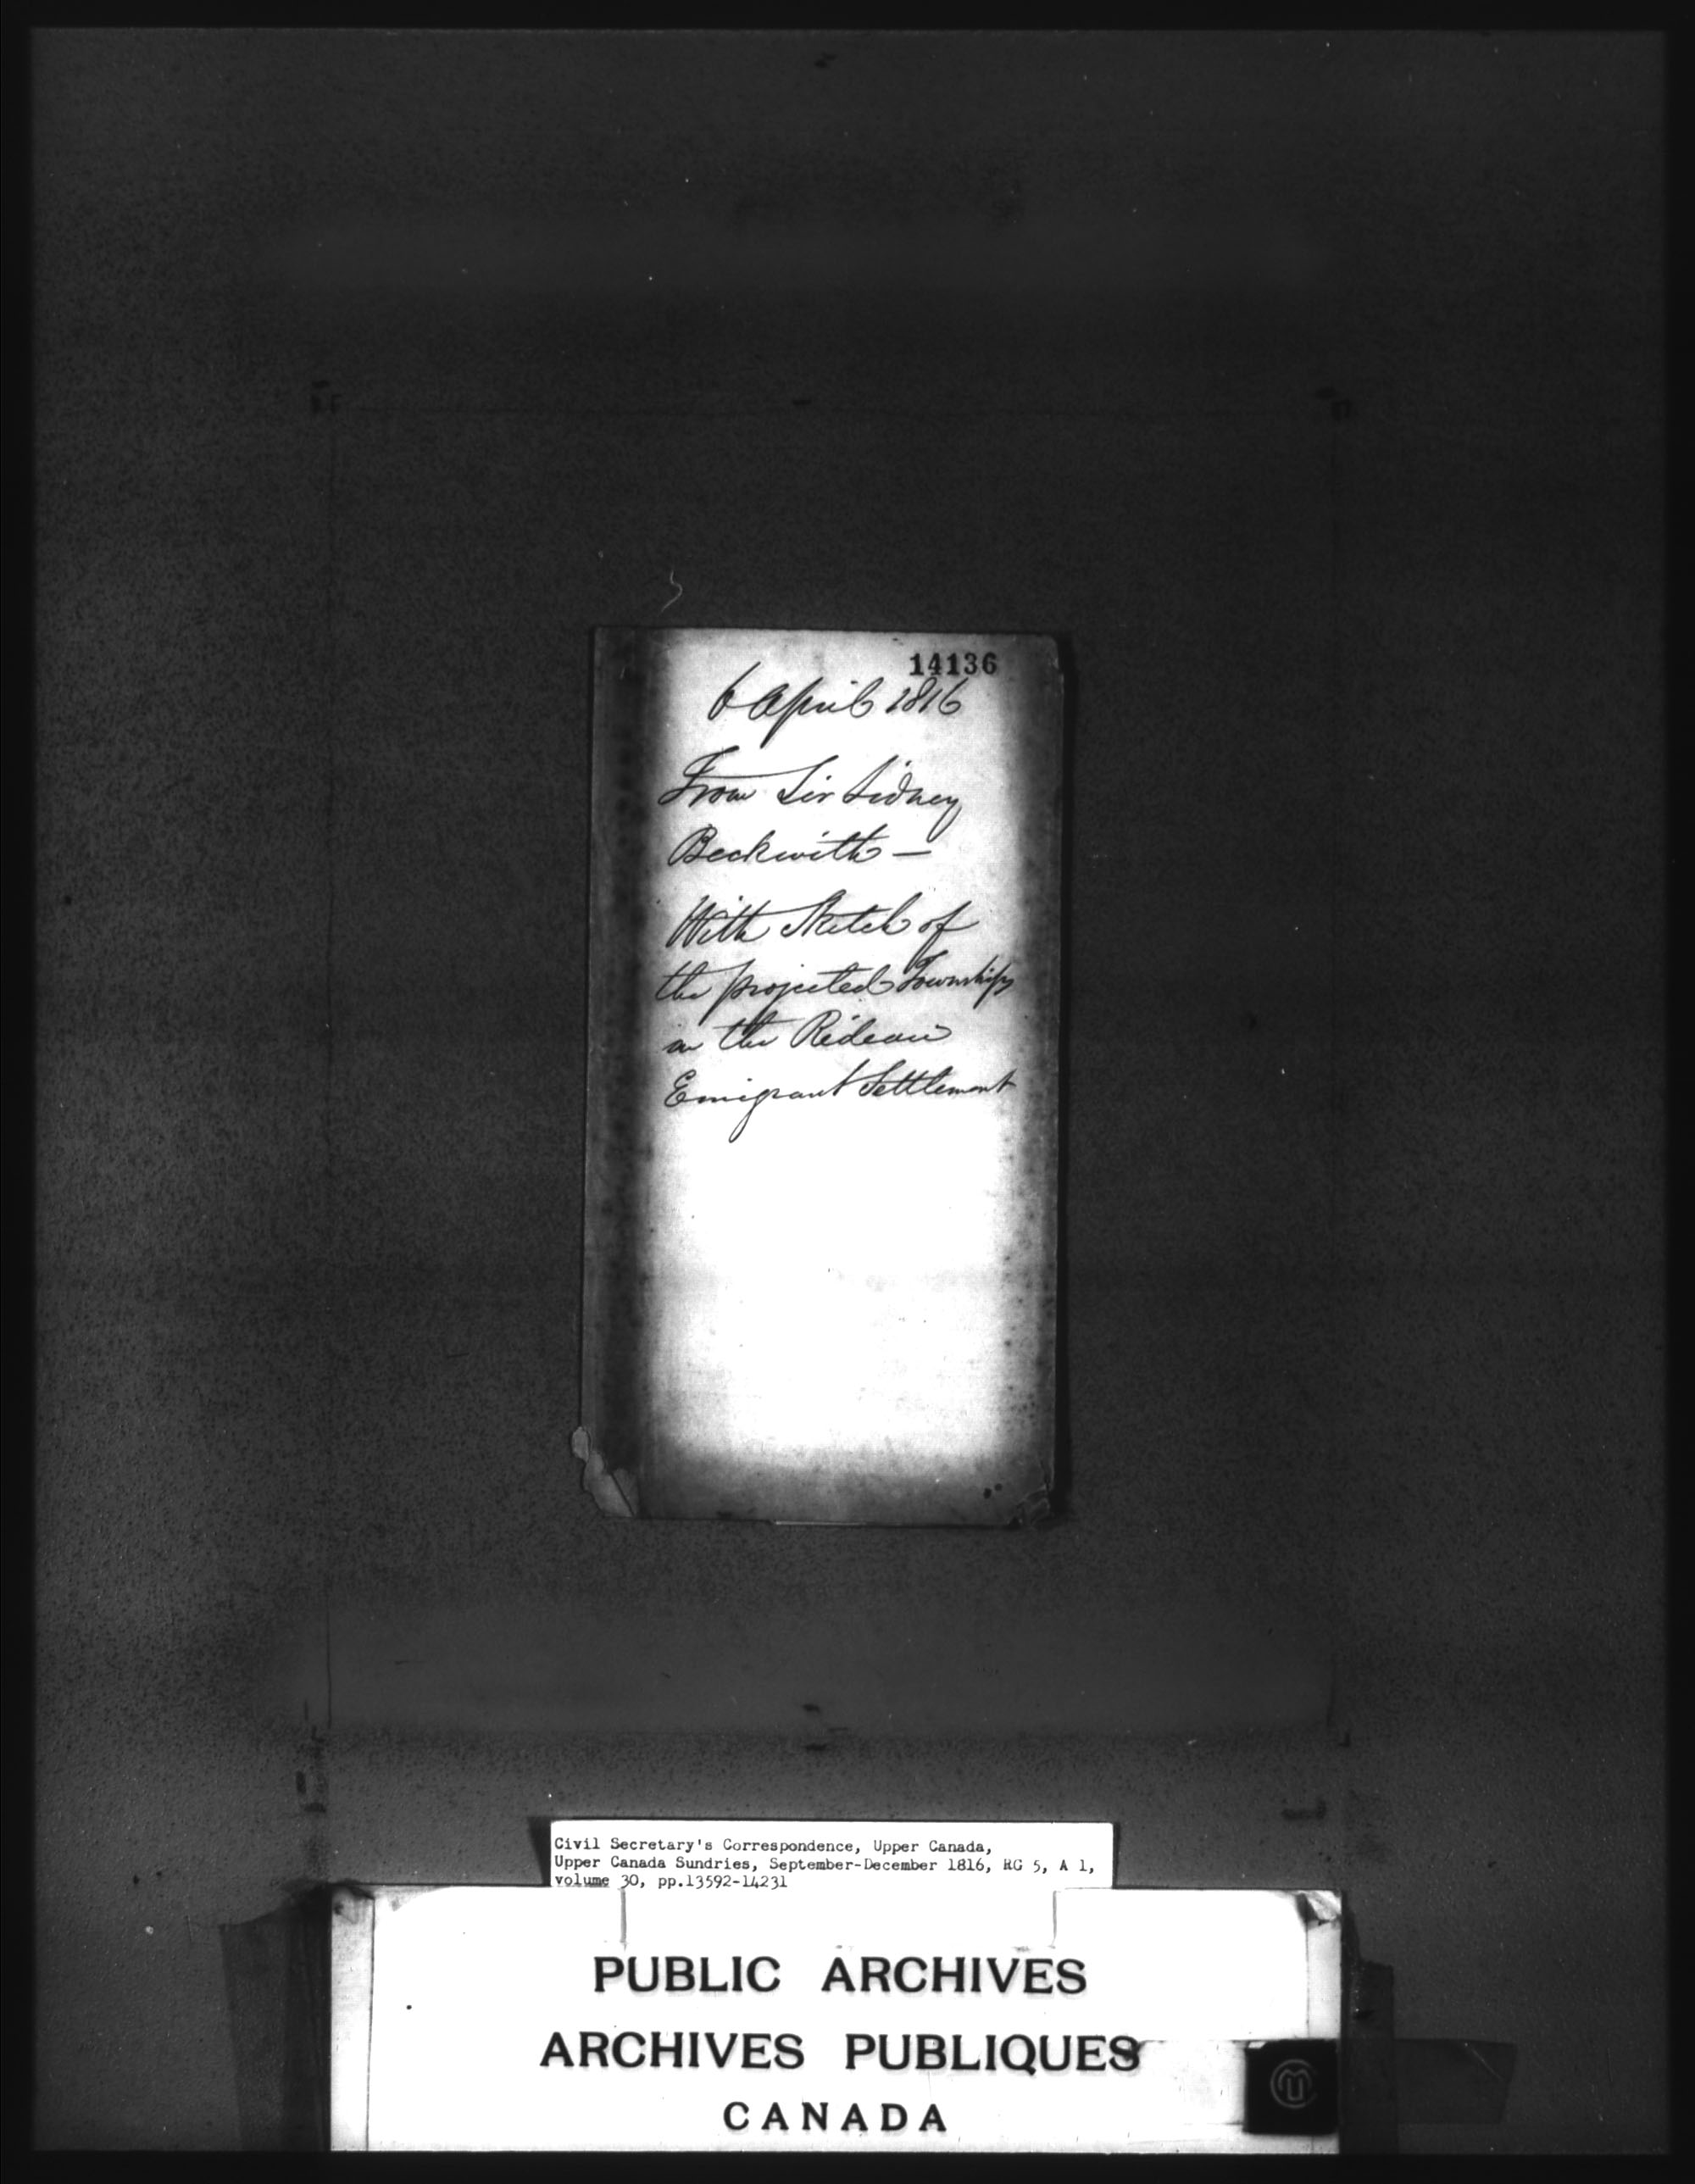 14136
6 April 1816
From Sir Sidney
Beckwith —
With Sketch of
the projected Townships
on the Rideau
Emigrant Settlement
Civil Secretary's Correspondence, Upper Canada,
Upper Canada Sundries, September-December 1816, RG 5, A 1,
volume 30, pp.13592-14231
PUBLIC ARCHIVES
ARCHIVES PUBLIQUES
CANADA